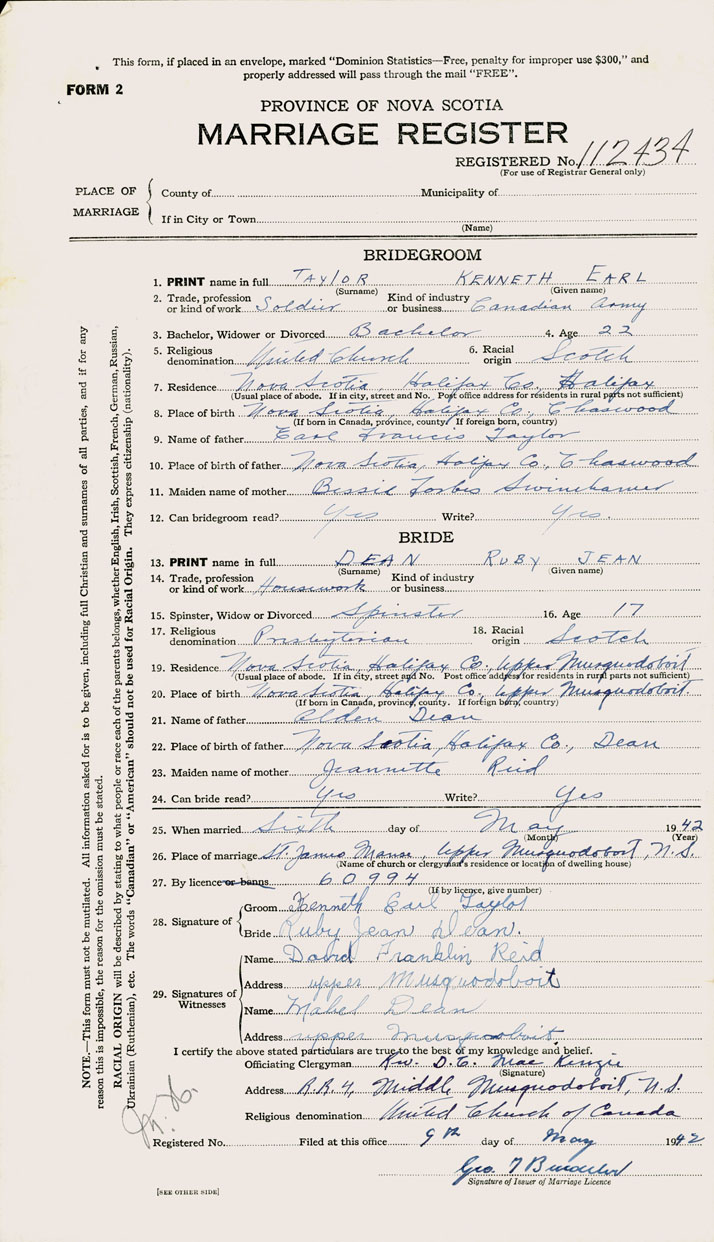 This form, if placed in an envelope, marked "Dominion Statistics—Free, penalty for improper use $300," and
properly addressed will pass through the mail "FREE".
FORM 2
PROVINCE OF NOVA SCOTIA
MARRIAGE REGISTER
REGISTERED No. 112434
(For use of Registrar General only)
PLACE OF MARRIAGE
County of Municipality of
If in City or Town
(Name)
BRIDEGROOM
1. PRINT name in full TAYLOR KENNETH EARL
(Surname) (Given name)
2. Trade, profession or kind of work Soldier Kind of industry or business Canadian Army
3. Bachelor, Widower or Divorced Bachelor 4. Age 22
5. Religious denomination United Church 6. Racial origin Scotch
7. Residence Nova Scotia, Halifax Co., Halifax
(Usual place of abode. If in city, street and No. Post office address for residents in rural parts not sufficient)
8. Place of birth Nova Scotia, Halifax Co., Chaswood
(If born in Canada, province, county. If foreign born, country)
9. Name of father Earl Francis Taylor
10. Place of birth of father Nova Scotia, Halifax Co., Chaswood
11. Maiden name of mother Bessie Forbes Swinehamer
12. Can bridegroom read? Yes Write? Yes.
BRIDE
13. PRINT name in full DEAN RUBY JEAN
(Surname) (Given name)
14. Trade, profession or kind of work Housework Kind of industry or business
15. Spinster, Widow or Divorced Spinster 16. Age 17
17. Religious denomination Presbyterian 18. Racial origin Scotch
19. Residence Nova Scotia, Halifax Co., Upper Musquodoboit
(Usual place of abode. If in city, street and No. Post office address for residents in rural parts not sufficient)
20. Place of birth Nova Scotia, Halifax Co., Upper Musquodoboit.
(If born in Canada, province, county. If foreign born, country)
21. Name of father Alden Dean
22. Place of birth of father Nova Scotia, Halifax Co., Dean
23. Maiden name of mother Jeannette Reid
24. Can bride read? Yes Write? Yes
25. When married Sixth day of May 1942
(Month) (Year)
26. Place of marriage St. James Manse, Upper Musquodoboit, N.S.
(Name of church or clergyman's residence or location of dwelling house)
27. By licence or banns 60994
(If by licence, give number)
28. Signature of
Groom Kenneth Earl Taylor
Bride Ruby Jean Dean.
29. Signatures of Witnesses
Name David Franklin Reid
Address upper Musquodoboit
Name Mabel Dean
Address upper Musquodoboit
I certify the above stated particulars are true to the best of my knowledge and belief.
Officiating Clergyman Rev. D.C. MacKenzie
(Signature)
Address R.R. 4, Middle Musquodoboit, N.S.
Religious denomination United Church of Canada
Registered No. Filed at this office 9th day of May 1942
Geo. T
Signature of Issuer of Marriage Licence
[SEE OTHER SIDE]
NOTE.—This form must not be mutilated. All information asked for is to be given, including full Christian and surnames of all parties, and if for any
reason this is impossible, the reason for the omission must be stated.
RACIAL ORIGIN will be described by stating to what people or race each of the parents belongs, whether English, Irish, Scottish, French, German, Russian,
Ukrainian (Ruthenian), etc. The words "Canadian" or "American" should not be used for Racial Origin. They express citizenship (nationality).